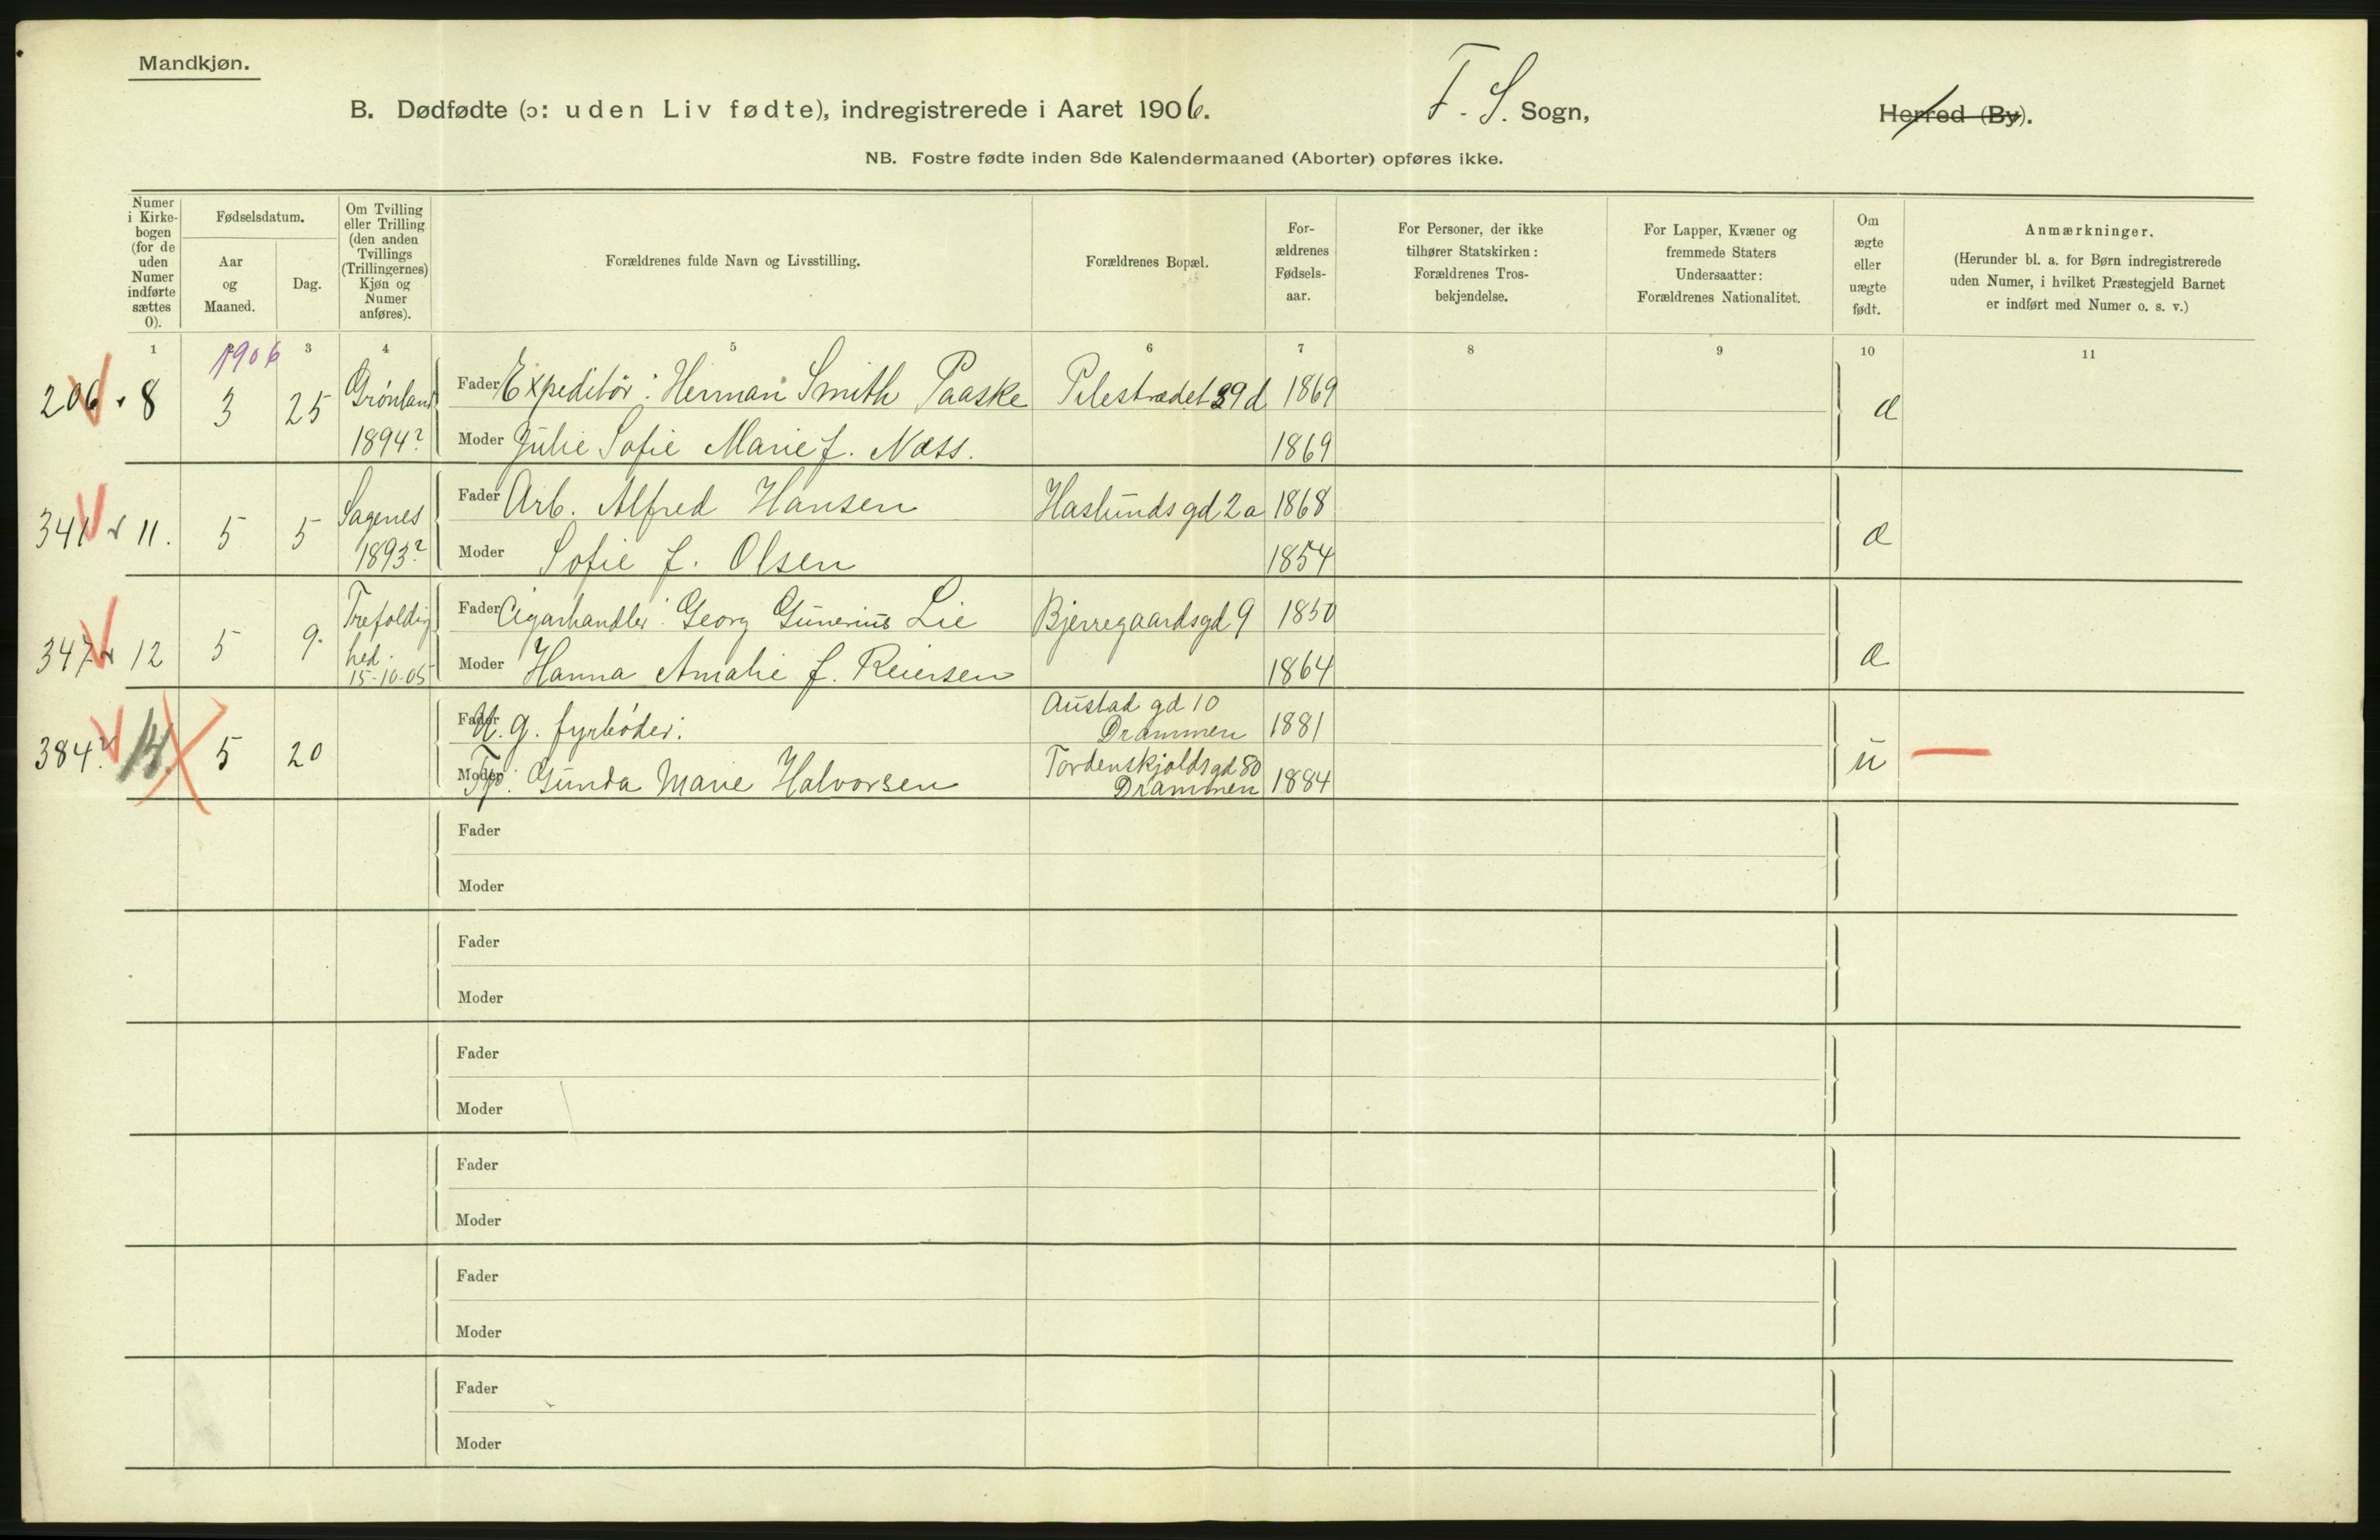 Mandkjøn.
B. Dødfødte (ɔ: uden Liv fødte), indregistrerede i Aaret 1906.
F. S. Sogn,
Herred (By).
NB. Fostre fødte inden 8de Kalendermaaned (Aborter) opføres ikke.
Numer i Kirkebogen (for de uden Numer indførte sættes 0).
Fødselsdatum.
Aar og Maaned.
Dag.
Om Tvilling eller Trilling (den anden Tvillings (Trillingernes) Kjøn og Numer anføres).
Forældrenes fulde Navn og Livsstilling.
Forældrenes Bopæl.
Forældrenes Fødselsaar.
For Personer, der ikke tilhører Statskirken: Forældrenes Trosbekjendelse.
For Lapper, Kvæner og fremmede Staters Undersaatter: Forældrenes Nationalitet.
Om ægte eller uægte født.
Anmærkninger.
(Herunder bl. a. for Børn indregistrerede uden Numer, i hvilket Præstegjeld Barnet er indført med Numer o. s. v.)
1 3 4 5 6 7 8 9 10 11
1906
206 8 3 25 Grönland Fader Expeditör: Herman Smith Paaske Pilestrædet 39d 1869 æ
1894? Moder Julie Sofie Marie f. Næss. 1869
341 11. 5 5 Sagenes Fader Arb. Alfred Hansen Haslunds gd 2a 1868 æ
1893? Moder Sofie f. Olsen 1854
347 12 5 9. Trefoldig Fader Cigarhandler: Georg Gunerius Lie Bjerregaardsgd 9 1850 æ
hed. 15-10-05 Moder Hanna Amalie f. Reiersen 1864
384 14. 5 20 Fader U. g. fyrböder: Austad gd 10 Drammen 1881 u
Moder Tjp: Gunda Marie Halvorsen Tordenskjoldsgd 80 Drammen 1884
Fader
Moder
Fader
Moder
Fader
Moder
Fader
Moder
Fader
Moder
Fader
Moder